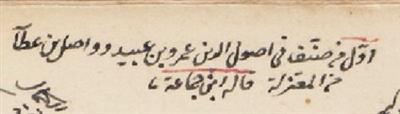 اول من صنف في اصول الدين عمرو بن عبيد وواصل بن عطآ
من المعتزلة قاله ابن جماعة